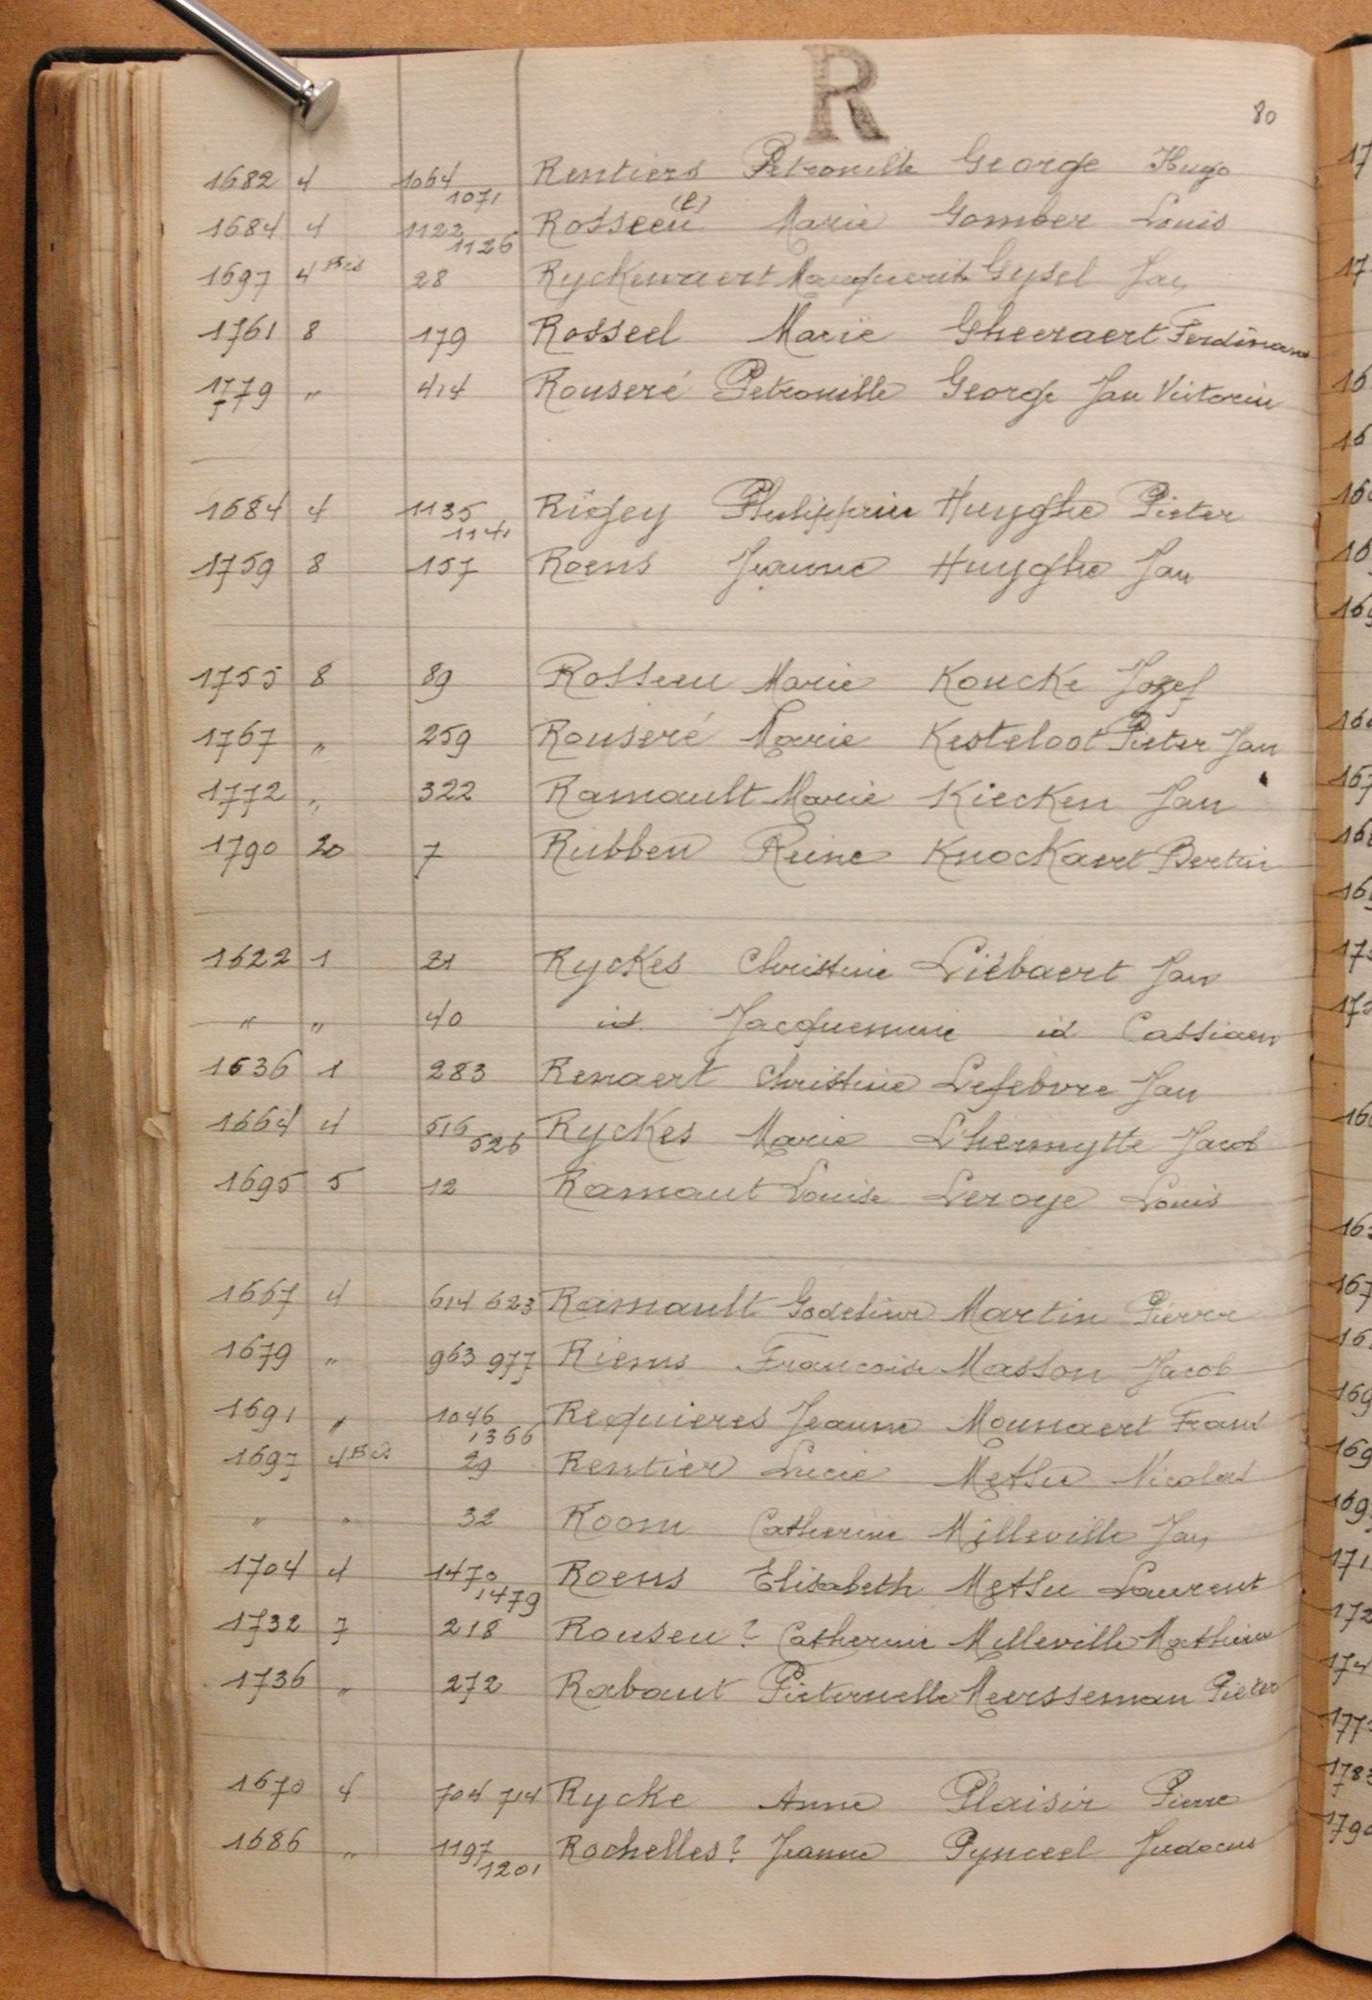 R
80
1682 4 1064 1071 Rentiers Petronille George Hugo
1684 4 1122 1126 Rosseeu (l) Marie Gomber Louis
1697 4 Bis 28 Ryckewaert Marguerite Gysel Jan
1761 8 179 Rosseel Marie Gheeraert Ferdinand
1779 " 414 Rouseré Petronille George Jan Victorin
1684 4 1135 1141 Rigey Philippine Huyghe Pieter
1759 8 157 Roens Jeanne Huyghe Jan
1755 8 89 Rosseeu Marie Koucke Jozef
1767 " 259 Rouseré Marie Kesteloot Pieter Jan
1772 " 322 Ramault Marie Kiecken Jan
1790 20 7 Rubben Reine Knockaert Bertin
1622 1 21 Ryckes Christine Liebaert Jan
" " 40 id Jacquemine id Cassiaen
1636 1 283 Renaert Christine Lefebvre Jan
1664 4 516 526 Ryckes Marie Lhermytte Jacob
1695 5 12 Ramaut Louise Leroye Louis
1667 4 614 623 Ramault Godelieve Martin Pierre
1679 " 963 977 Riems Francoise Masson Jacob
1691 " 1046 1366 Requieres Jeanne Mounaert Frans
1697 4 Bis 29 Rentier Lucie Methu Nicolas
" " 32 Room Catherine Milleville Jan
1704 4 1470 1479 Roens Elisabeth Methu Laurent
1732 7 218 Rouseu? Catherine Milleville Mathieu
1736 " 272 Rabaut Pieternelle Meersseman Pieter
1670 4 704 714 Rycke Anne Plaisir Pierre
1686 " 1197 1201 Rochelles? Jeanne Pynceel Judocus